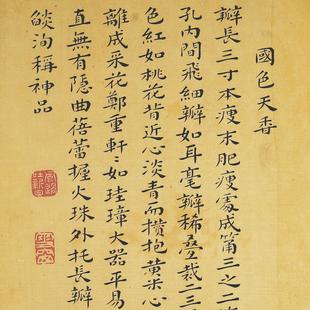 國色天香
瓣長三寸本瘦末肥瘦處成筩三之二
孔內間飛細瓣如耳毫瓣稀疊裁二三
色紅如桃花背近心淡青而攢抱黃朱心
離咸采花鄭重軒=如珪璋大器平易
直無有隱曲蓓蕾握火珠外托長瓣
皦洵稱神品